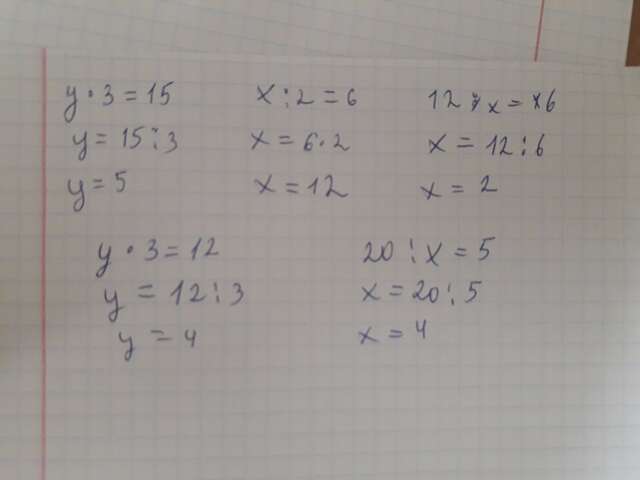 y · 3 = 15
y = 15 : 3
y = 5
x : 2 = 6
x = 6 · 2
x = 12
12 : x = 6
x = 12 : 6
x = 2
y · 3 = 12
y = 12 : 3
y = 4
20 : x = 5
x = 20 : 5
x = 4